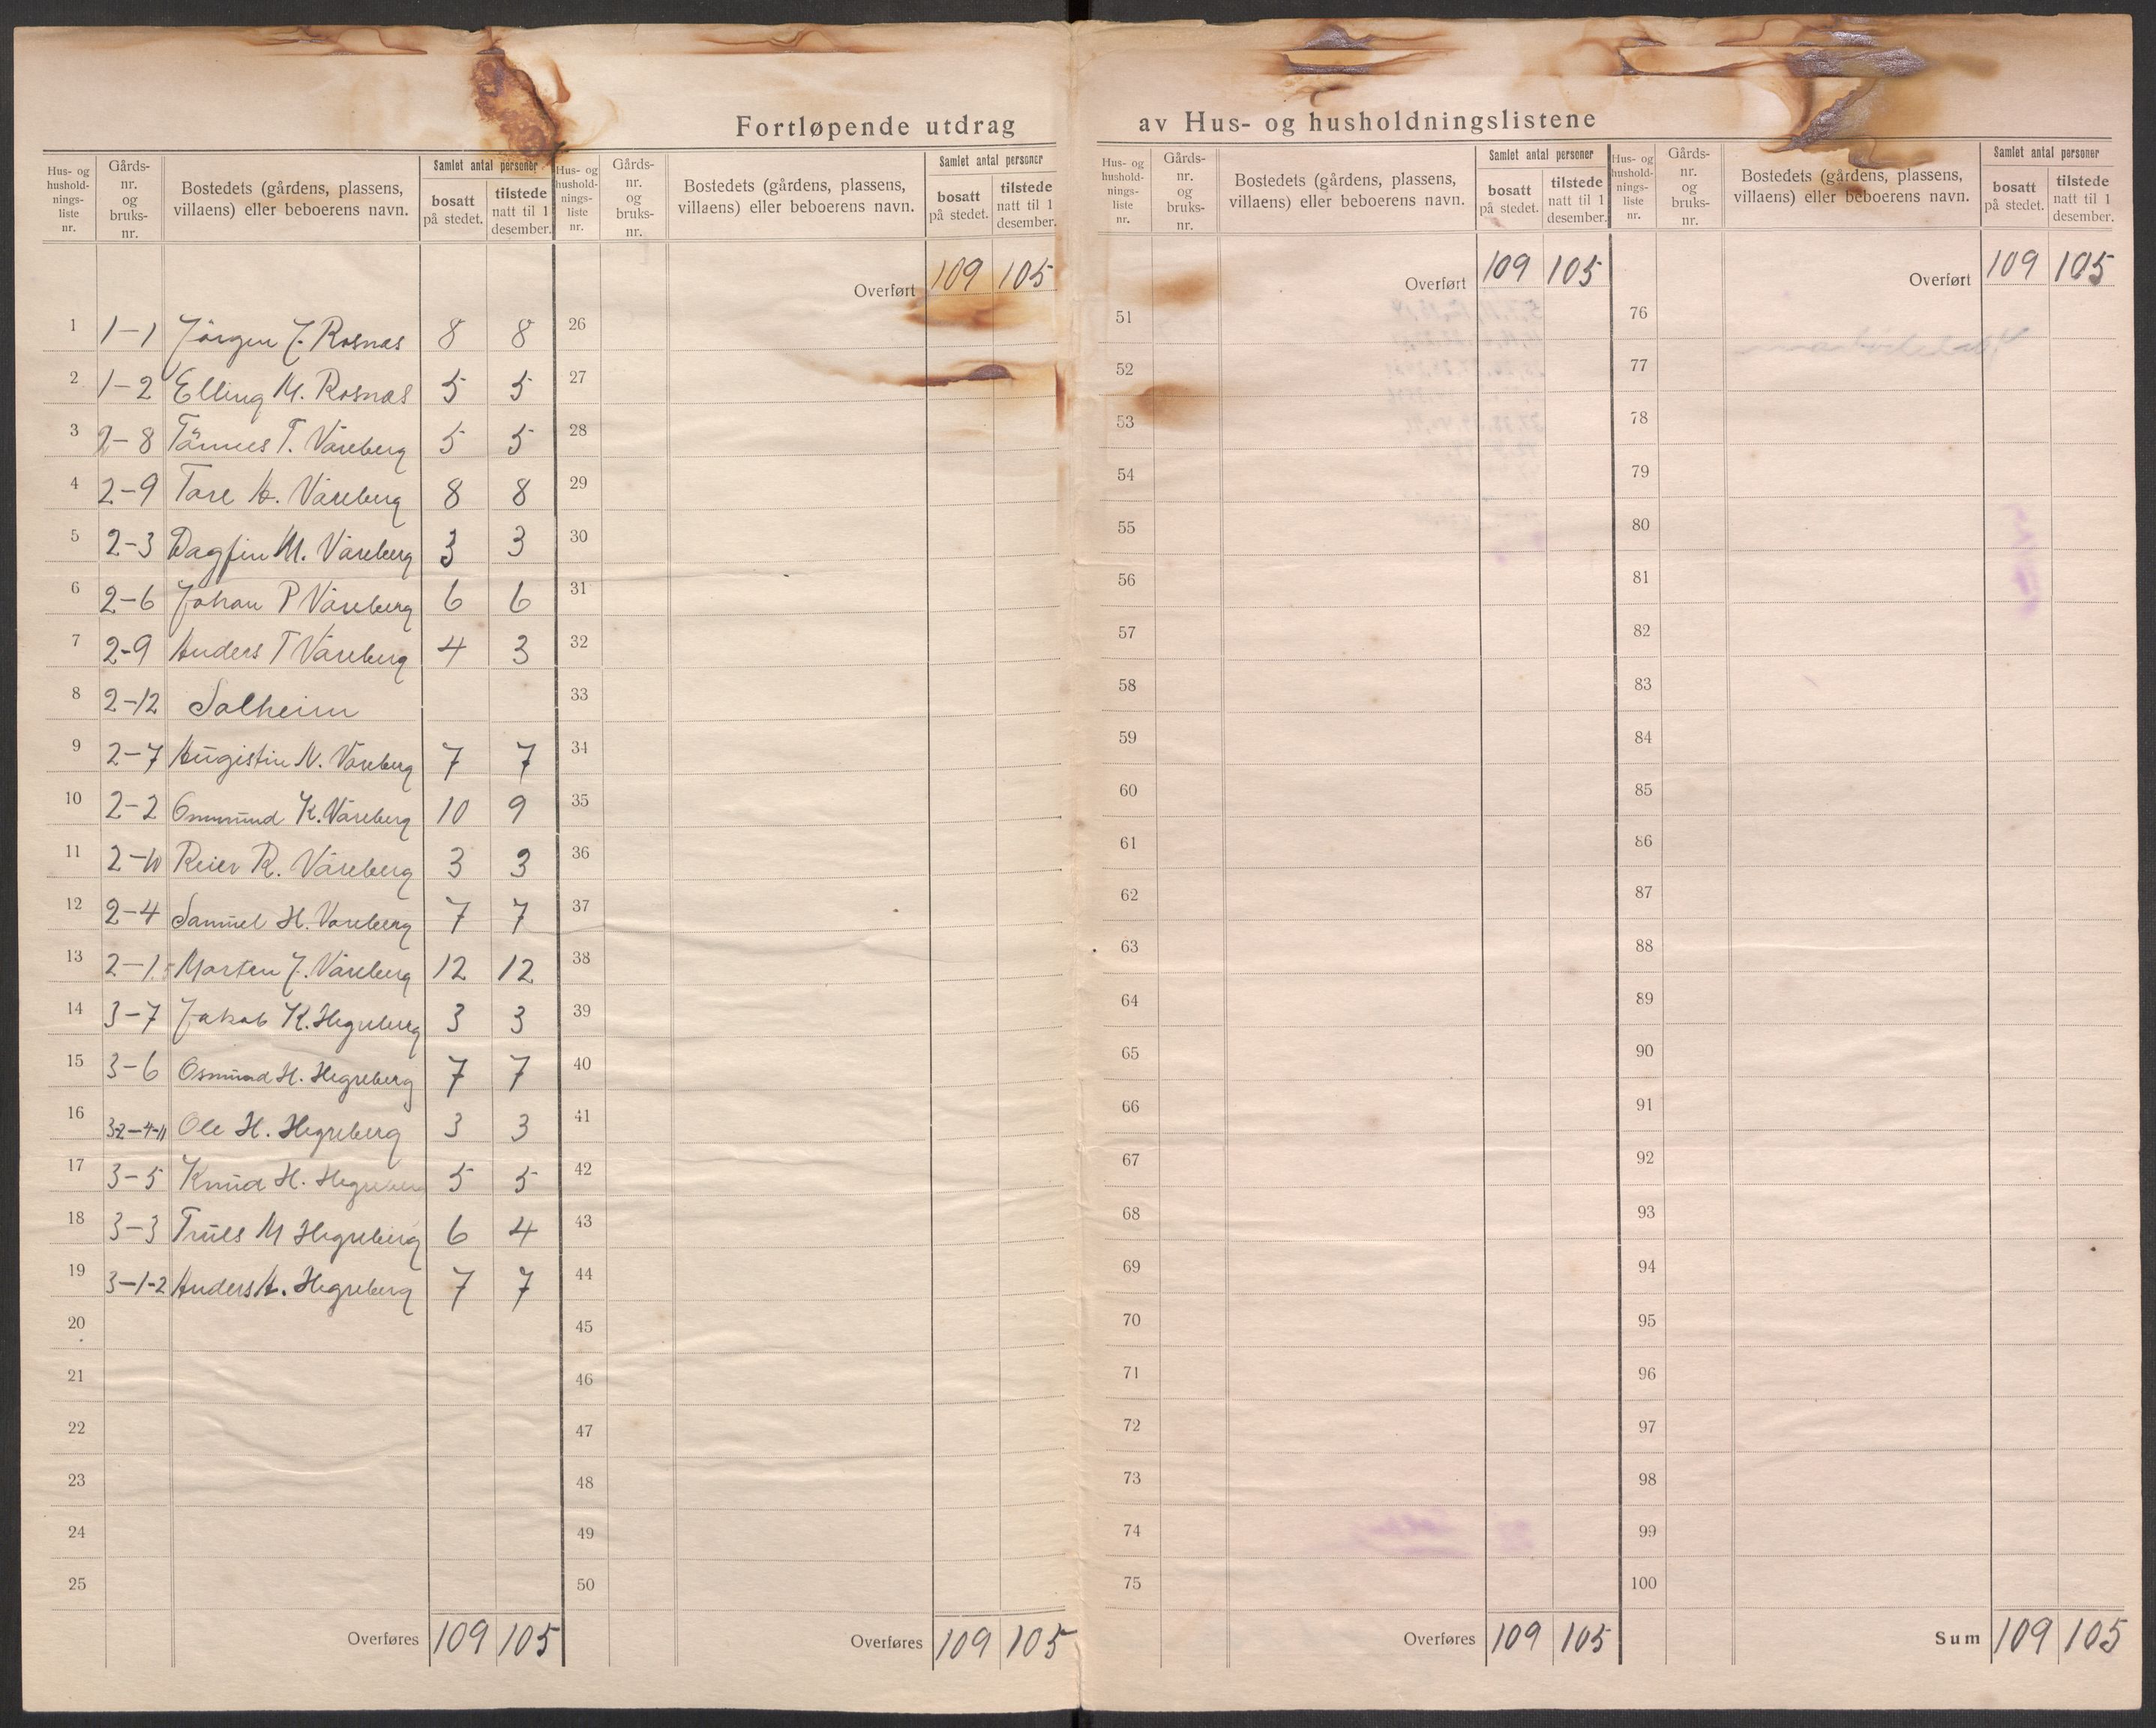 Fortløpende utdrag av Hus- og husholdningslistene
Hus- og hushold-nings-liste nr. Gårds-nr. og bruks-nr. Bostedets (gårdens, plassens, villaens) eller beboerens navn. Samlet antal personer bosatt på stedet. tilstede natt til 1 desember.
1 1-1 Jörgen J. Rosnæs 8 8
2 1-2 Elling M. Rosnæs 5 5
3 2-8 Tönnes T. Våreberg 5 5
4 2-9 Tore A. Våreberg 8 8
5 2-3 Dagfin M. Våreberg 3 3
6 2-6 Johan P Våreberg 6 6
7 2-9 Anders T Våreberg 4 3
8 2-12 Solheim
9 2-7 Augistin N. Våreberg 7 7
10 2-2 Osmund K. Våreberg 10 9
11 2-10 Reier R. Våreberg 3 3
12 2-4 Samuel H. Våreberg 7 7
13 2-1.5 Morten J. Våreberg 12 12
14 3-7 Jakob K. Hegreberg 3 3
15 3-6 Osmund H. Hegreberg 7 7
16 3-2-4-11 Ole H. Hegreberg 3 3
17 3-5 Knud H. Hegreberg 5 5
18 3-3 Truls M Hegreberg 6 4
19 3-1-2 Anders A. Hegreberg 7 7
20
21
22
23
24
25
Overføres 109 105
Hus- og hushold-nings-liste nr. Gårds-nr. og bruks-nr. Bostedets (gårdens, plassens, villaens) eller beboerens navn. Samlet antal personer bosatt på stedet. tilstede natt til 1 desember.
Overført 109 105
26
27
28
29
30
31
32
33
34
35
36
37
38
39
40
41
42
43
44
45
46
47
48
49
50
Overføres 109 105
Hus- og hushold-nings-liste nr. Gårds-nr. og bruks-nr. Bostedets (gårdens, plassens, villaens) eller beboerens navn. Samlet antal personer bosatt på stedet. tilstede natt til 1 desember.
Overført 109 105
51
52
53
54
55
56
57
58
59
60
61
62
63
64
65
66
67
68
69
70
71
72
73
74
75
Overføres 109 105
Hus- og hushold-nings-liste nr. Gårds-nr. og bruks-nr. Bostedets (gårdens, plassens, villaens) eller beboerens navn. Samlet antal personer bosatt på stedet. tilstede natt til 1 desember.
Overført 109 105
76
77
78
79
80
81
82
83
84
85
86
87
88
89
90
91
92
93
94
95
96
97
98
99
100
Sum 109 105